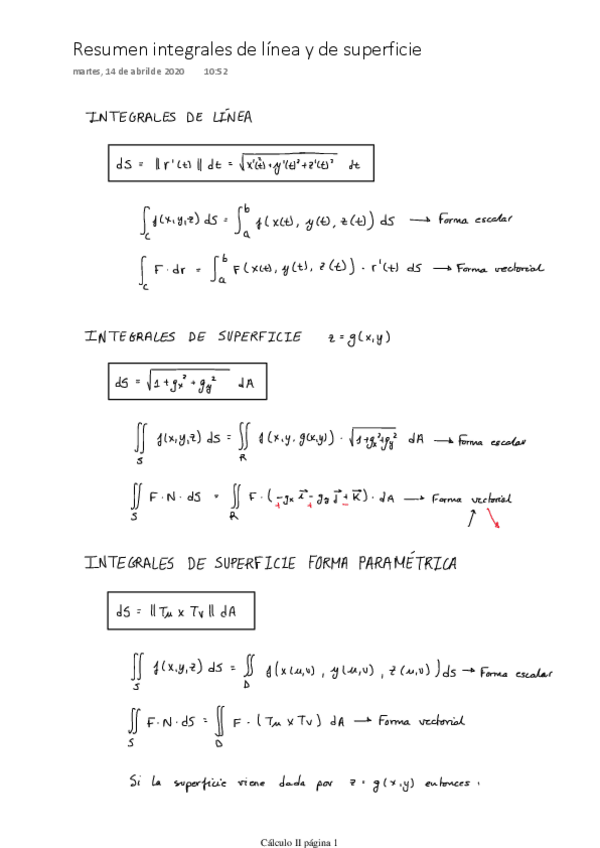 Resumen integrales de línea y de superficie
martes, 14 de abril de 2020 10:52
INTEGRALES DE LÍNEA
dS = ‖ r'(t) ‖ dt = √(x'(t)²+y'(t)²+z'(t)²) dt
∫_C f(x,y,z) dS = ∫_a^b f(x(t), y(t), z(t)) dS → Forma escalar
∫_C F·dr = ∫_a^b F(x(t), y(t), z(t)) · r'(t) dS → Forma vectorial
INTEGRALES DE SUPERFICIE z = g(x,y)
dS = √(1+gx²+gy²) dA
∬_S f(x,y,z) dS = ∬_R f(x,y,g(x,y)) · √(1+gx²+gy²) dA → Forma escalar
∬_S F·N·dS = ∬_R F·(-gx i⃗ - gy j⃗ + k⃗)·dA → Forma vectorial
+ + -
INTEGRALES DE SUPERFICIE FORMA PARAMÉTRICA
dS = ‖Tu x Tv‖ dA
∬_S f(x,y,z) dS = ∬_D f(x(u,v), y(u,v), z(u,v)) dS → Forma escalar
∬_S F·N·dS = ∬_D F·(Tu x Tv) dA → Forma vectorial
Si la superficie viene dada por z = g(x,y) entonces :
Cálculo II página 1